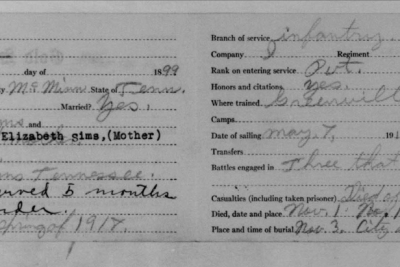 Branch of service infantry.
Company I Regiment
day of 1899
Rank on entering service Pvt.
y Mc Minn State of Tenn.
Honors and citations Yes
Married? Yes.
Where trained Greenvill
and
Camps
Elizabeth Sims,(Mother)
Date of sailing May 7, 191
Transfers
Tennessee.
Battles engaged in Three that
erved 5 months
rder.
Casualties (including taken prisoner) Died of
Spring of 1917.
Died, date and place Nov. 1
Place and time of burial Nov. 3. City